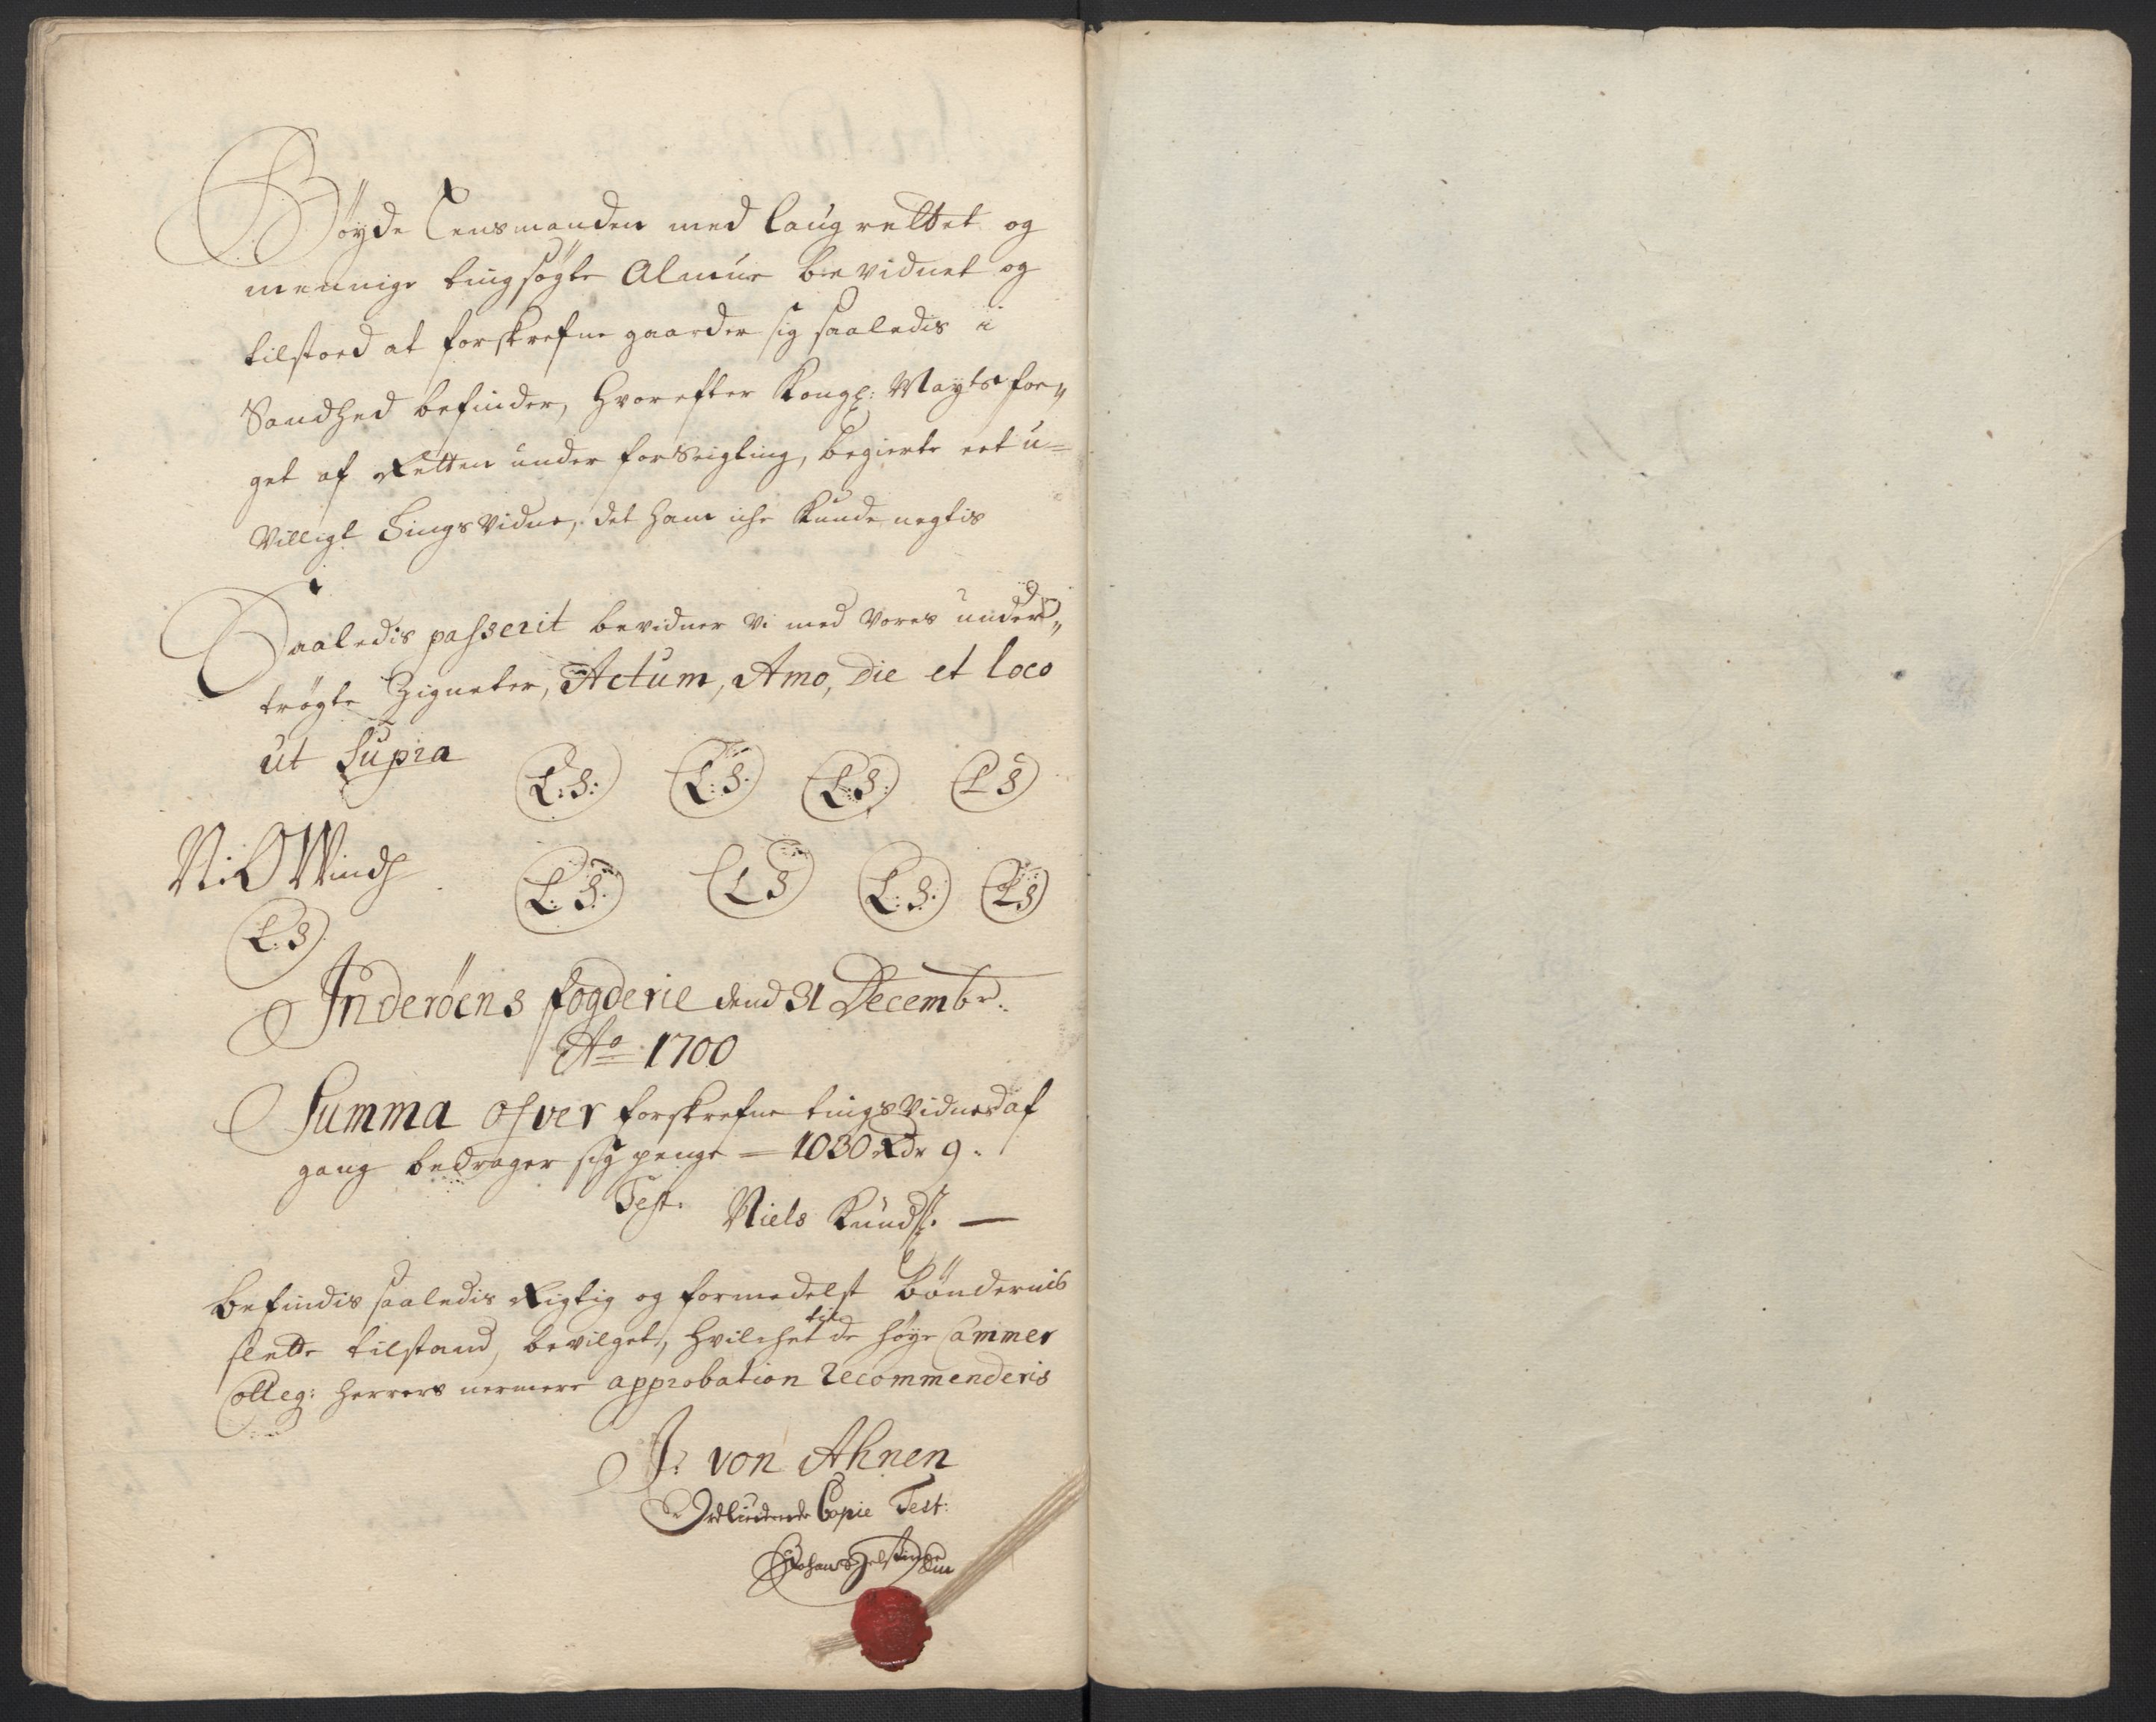 Böyde Lensmanden med Laugrettet og
mennige tingsögte Almue bevidnet og
tilstoed at forskrefne gaarder sig saaledis i
Sandhed befinder, hvorefter Kongl: Mayts fo„
get af Retten under forseigling, begierte eet u=
villigt Tings Vidne, det ham iche kunde negtis
Saaledis passerit bevidner vi med vores under„
trögte Zigneter, Actum, Anno, Die et loco
ut Supra
L:S: L:S: L:S: L S
N:O Winds
L:S: L S L:S: L S
L:S
Inderöens fogderie dend 31 Decembr:
Ao 1700
Summa ofver forskrefne tings Vidnes af
gang bedrager sig penge = 1030 Rdr 9:
Test: Niels Knuds: —
Befindis saaledis Rigtig og formedelst Böndernis
slette tilstand, bevilget, hvilchet til de höye Cammer
Colleg: herrers nermere approbation recommenderis
J: von Ahnen
Ordliudende Copie Test: